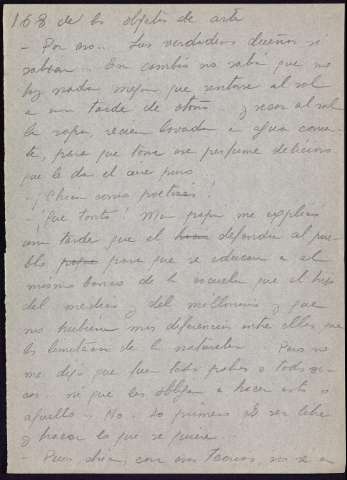 168 de los objetos de arte
- Por eso... Sus verdaderos dueños sí
sabían... En cambio no sabe que no
hay nada mejor que sentarse al sol
a una tarde de otoño... y secar al sol
la ropa, recien lavada a agua corrien-
te, para que tome ese perfume delicioso
que le da el aire puro
- ¡ cosas poeticas!
¡Que tonto! Mi papa me explico
una tarde que el defendia al pue-
blo para que se educara en el
mismo banco de la escuela que el hijo
del medico y del millonario y que
no hubiera mas diferencias entre ellos que
las de la naturaleza Pero no
me dijo que fueran todos pobres o todos ri-
cos.. ni que los obligan a hacer esto o
aquello... No. Lo primero es ser libre
y hacer lo que se quiere...
- Pues con esas teorias, no se